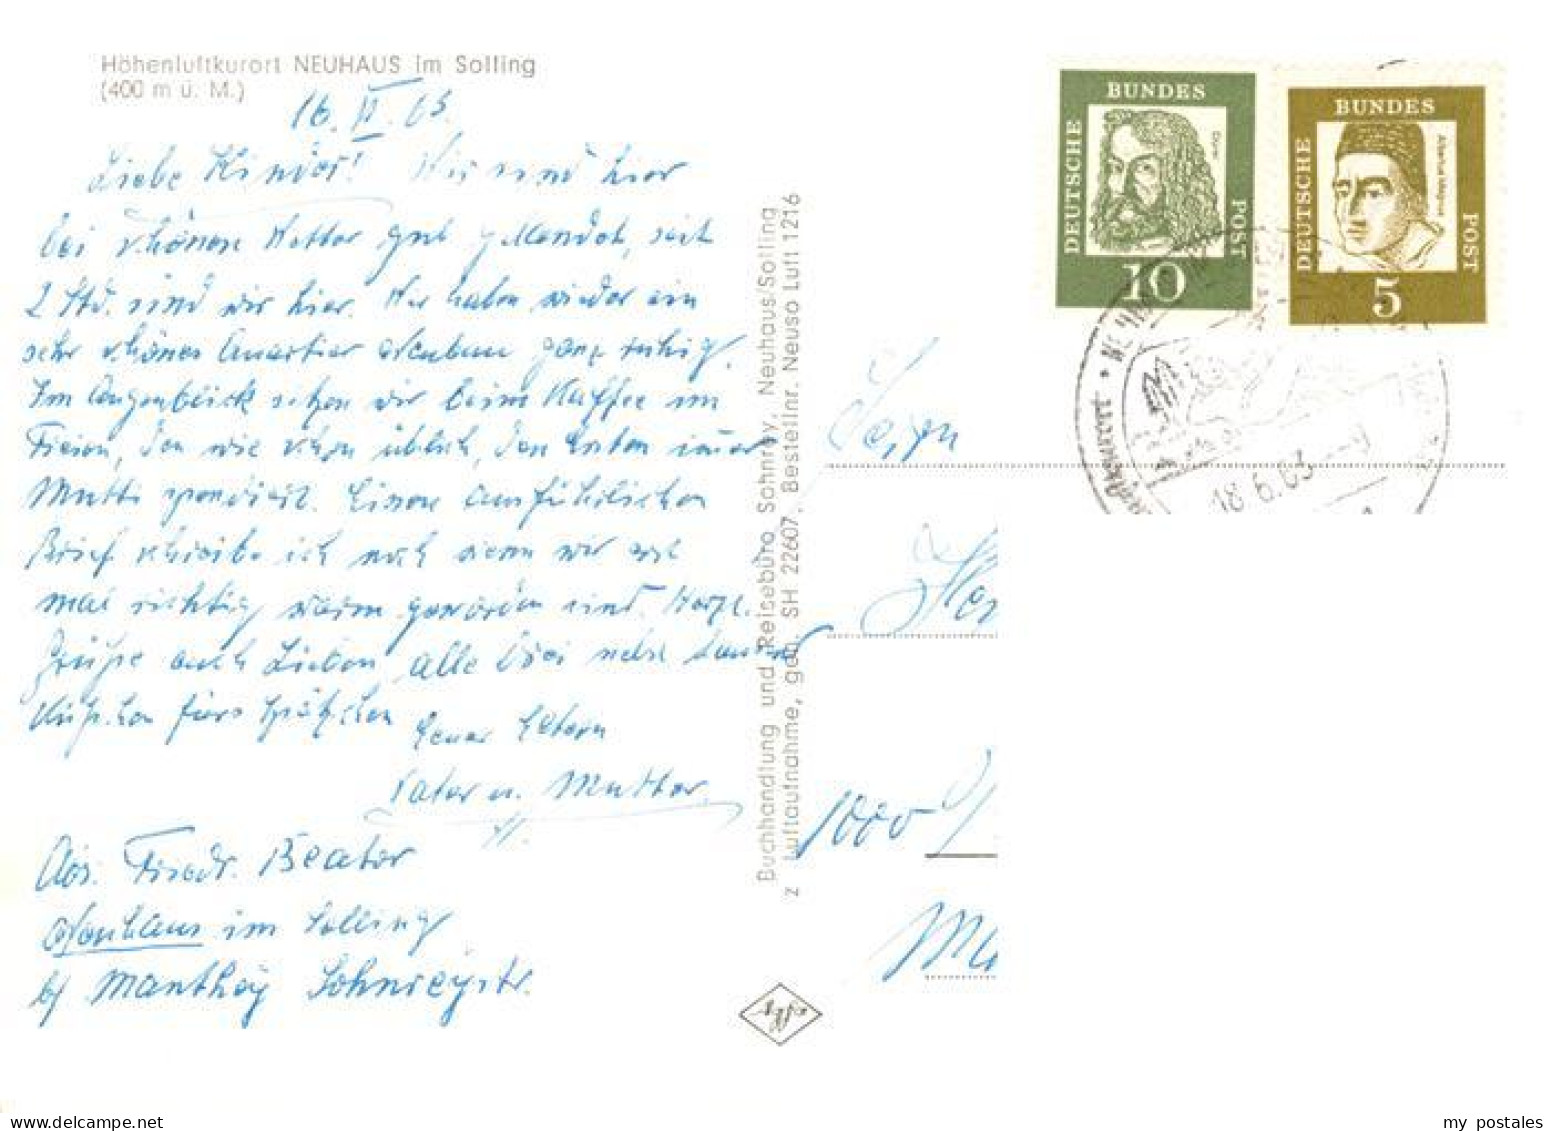 Höhenluftkurort NEUHAUS im Solling
(400 m ü. M.)
16. VI. 63.
Liebe Kinder! Wir sind hier
bei schönem Wetter gut gelandet, seit
2 Std. sind wir hier. Wir haben wieder ein
sehr schönes Quartier ganz ruhig.
Im Augenblick sitzen wir beim Kaffee im
Freien, den wie schon üblich, den ersten immer
Mutti spendiert. Einen ausführlichen
Brief schreibe ich noch wenn wir erst
mal richtig warm geworden sind. Herzl.
Grüße euch Lieben alle drei nebst
Küßchen fürs Spätzchen
Eure Eltern
Vater u. Mutter.
Abs. Friedr. Beater
Neuhaus im Solling
b/ Manthey Sohnreystr.
Buchhandlung und Reisebüro Sohnrey, Neuhaus/Solling
z Luftaufnahme, gen. SH 22607, Bestellnr. Neuso Luft 1216
DEUTSCHE BUNDESPOST
Dürer
10
DEUTSCHE BUNDESPOST
Albertus Magnus
5
18.6.63
1000
my postales